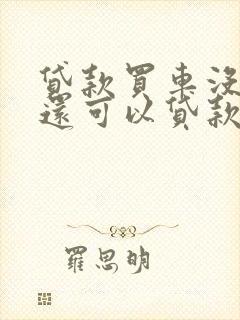 貸款買車沒
還可以貸款
羅思明